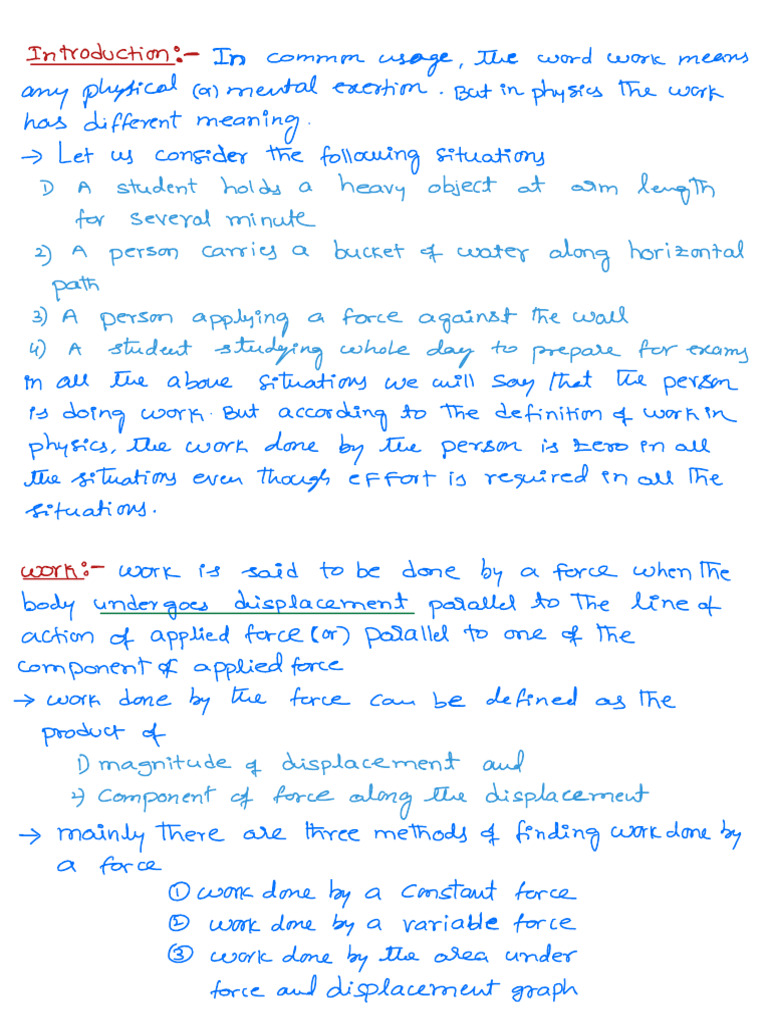 Introduction:- In common usage, the word work means
any physical (or) mental exertion. But in physics the work
has different meaning.
→ Let us consider the following situations
1) A student holds a heavy object at arm length
for several minute
2) A person carries a bucket of water along horizontal
path
3) A person applying a force against the wall
4) A student studying whole day to prepare for exams
in all the above situations we will say that the person
is doing work. But according to the definition of work in
physics, the work done by the person is zero in all
the situations even though effort is required in all the
situations.
work:- work is said to be done by a force when the
body undergoes displacement parallel to the line of
action of applied force (or) parallel to one of the
component of applied force
→ work done by the force can be defined as the
product of
1) magnitude of displacement and
2) Component of force along the displacement
→ mainly there are three methods of finding work done by
a force
① work done by a constant force
② work done by a variable force
③ work done by the area under
force and displacement graph